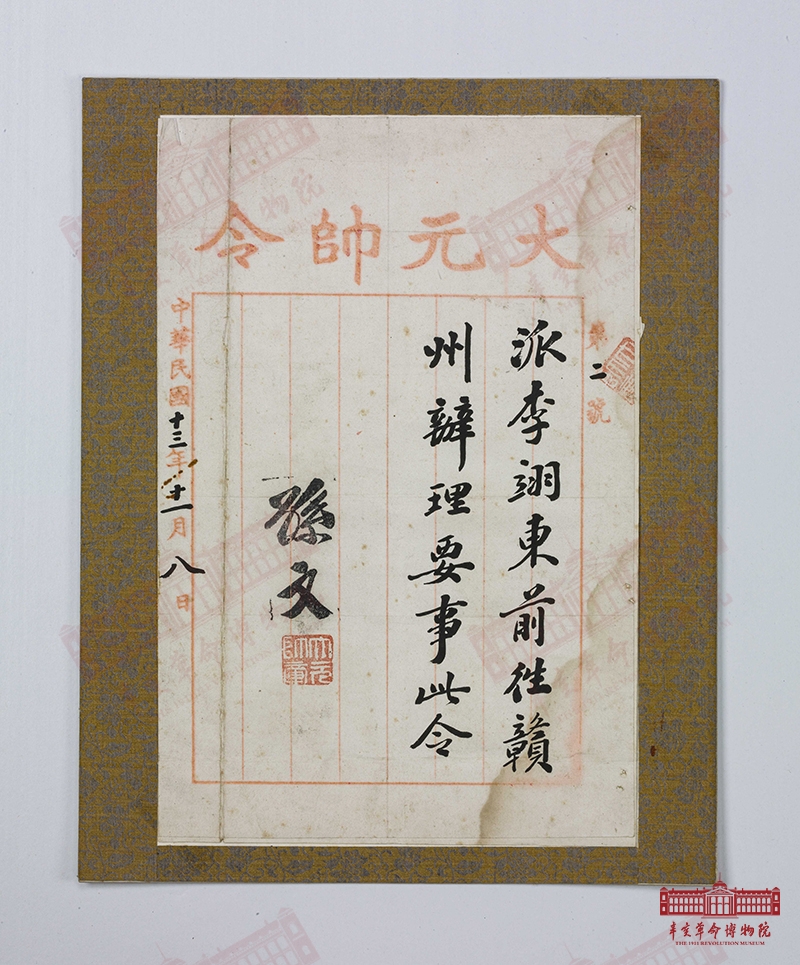 大元帥令
第二號
派李翊東前往贛
州辦理要事此令
孫文
大元帥章
中華民國十三年十一月八日
辛亥革命博物院
THE 1911 REVOLUTION MUSEUM